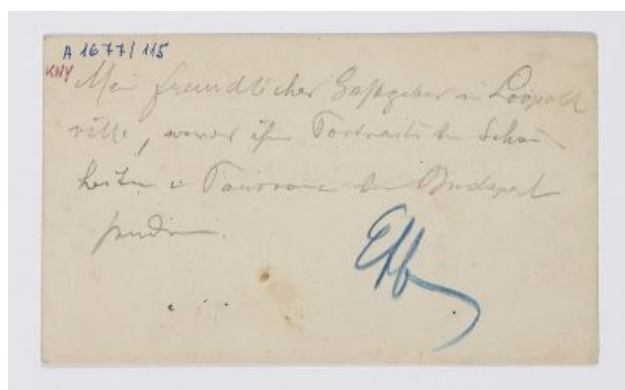 A 1677/115
KNY
Mein freundlicher Gastgeber in Leopold
ville, Portraits der Schön
heiten u Panorama von Budapest
senden.